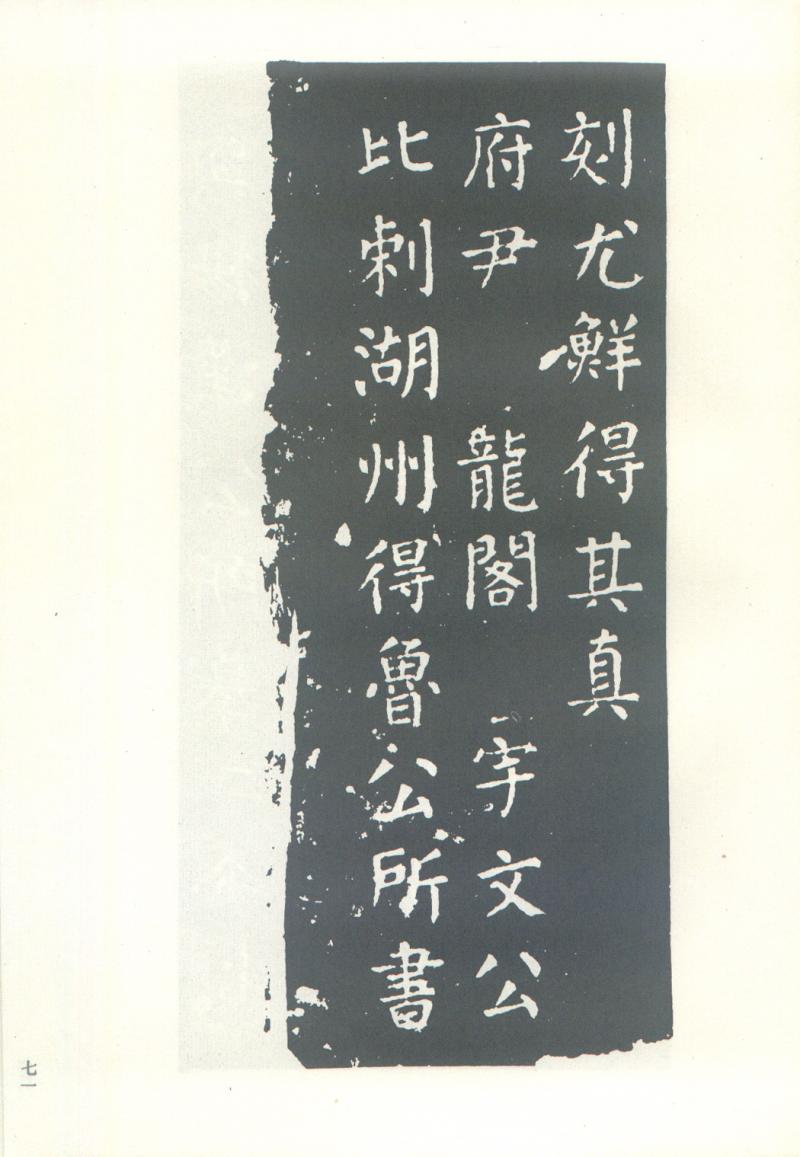 刻尤鮮得其真
府尹 龍閣 宇文公
比刺湖州得魯公所書
七一